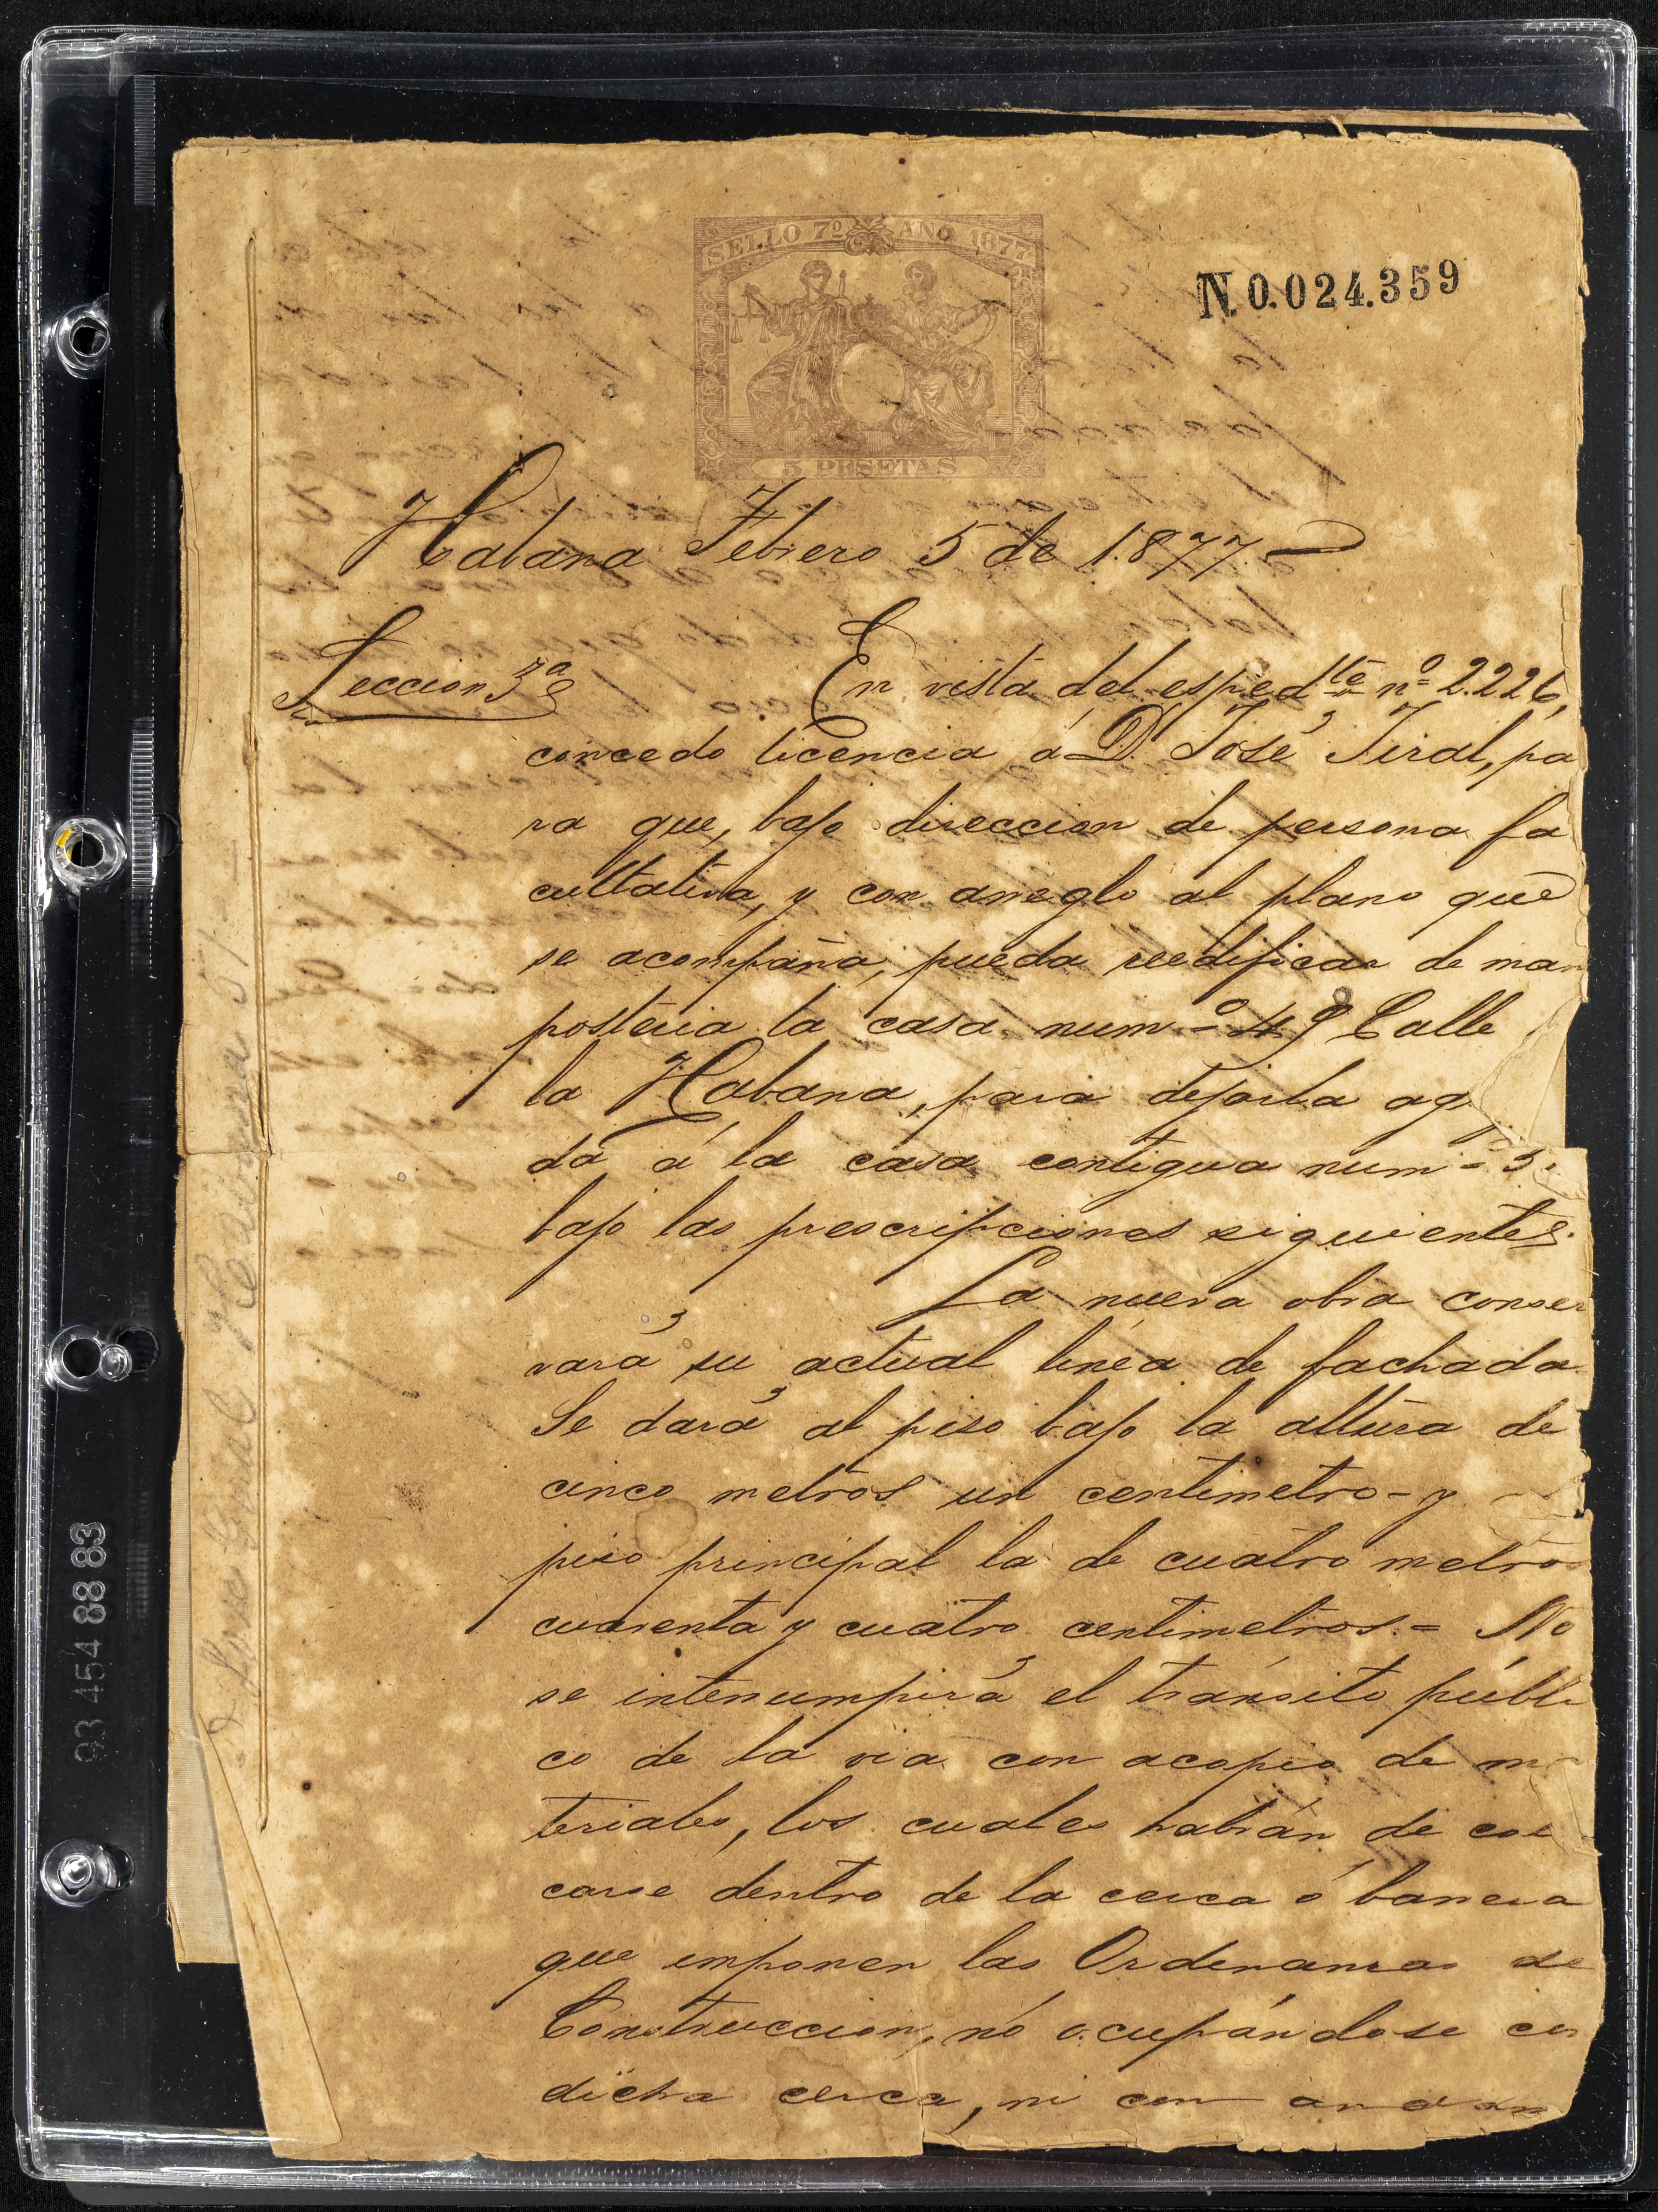 SELLO 7º AÑO 1877
N. 0.024.359
5 PESETAS
Habana Febrero 5 de 1.877.
Seccion 3ª
En vista del espedte nº 2.226,
concedo licencia á D. José Jiral, pa
ra que, bajo direccion de persona fa
cultativa, y con arreglo al plano que
se acompaña, pueda reedificar de mam
postería la casa numº 49 Calle
la Habana, para dejarla ag
da á la casa contigua num
bajo las prescripciones siguientes.
La nueva obra conser
vará su actual línea de fachada
Se dará al piso bajo la altura de
cinco metros un centímetro - y
piso principal la de cuatro metros
cuarenta y cuatro centimetros. = No
se interrumpirá el tránsito públi
co de la via con acopio de m
teriales, los cuales habrán de co
carse dentro de la cerca ó barrera
que imponen las Ordenanzas de
Construccion, no ocupándose con
dicha cerca, ni con
93 454 88 83